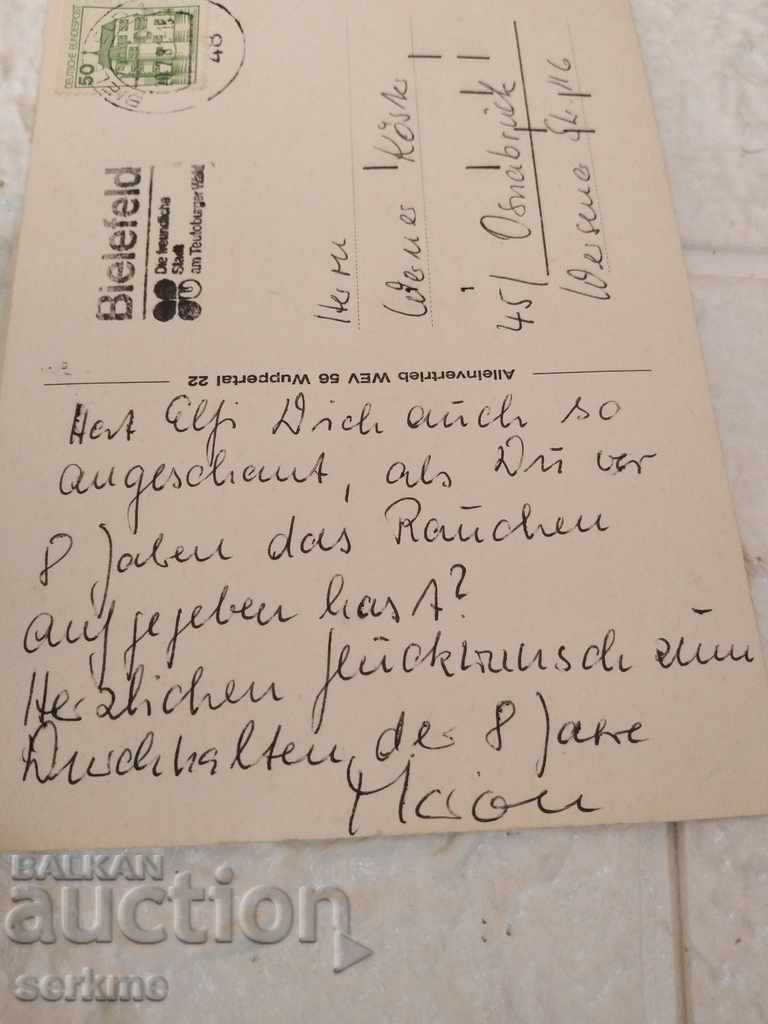 50
DEUTSCHE BUNDESPOST
48
Bielefeld
Die freundliche
Stadt
am Teutoburger Wald
Herrn
Werner
451 Osnabrück
Wersener
Alleinvertrieb WEV 56 Wuppertal 22
Hat Elfi Dich auch so
angeschaut, als Du vor
8 Jahren das Rauchen
aufgegeben hast?
Herzlichen Glückwunsch zum
Durchhalten der 8 Jahre
BALKAN
auction
serkme